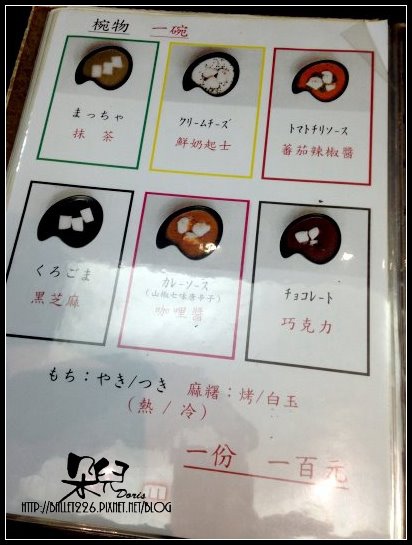 椀物 一碗
まっちゃ
抹 茶
クリームチーズ
鮮奶起士
トマトチリソース
蕃茄辣椒醬
くろごま
黑芝麻
カレーソース
(山椒七味唐辛子)
咖哩醬
チョコレート
巧克力
もち：やき/つき 麻糬：烤/白玉
(熱 / 冷)
一份 一百元
朵兒
Doris
HTTP://BALLET226.PIXNET.NET/BLOG